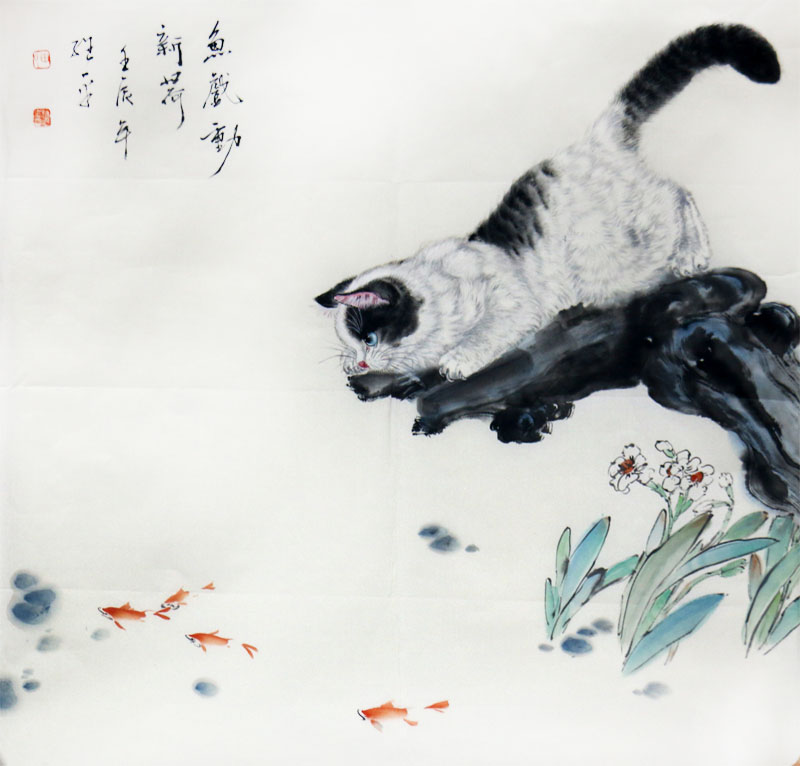 魚戲動
新荷
壬辰年